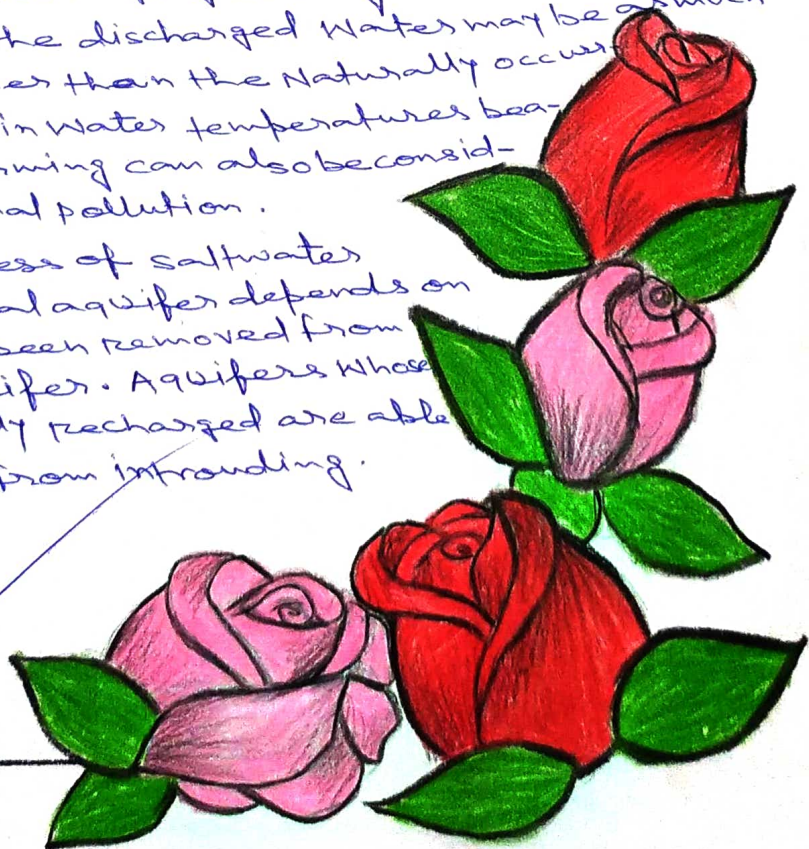 he discharged Water may be as much
er than the Naturally occur
in Water temperatures bea-
ming can also be consid-
al pollution.
ess of saltwater
al aquifer depends on
been removed from
ifer. Aquifers whose
ly recharged are able
from introuding.